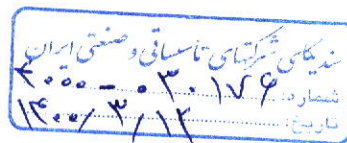 سندیکای شرکتهای تاسیساتی و صنعتی ایران
شماره: ۴۰۰۰ - ۰۳۰۱۷۶
تاریخ: ۱۴۰۰/۳/۱۲